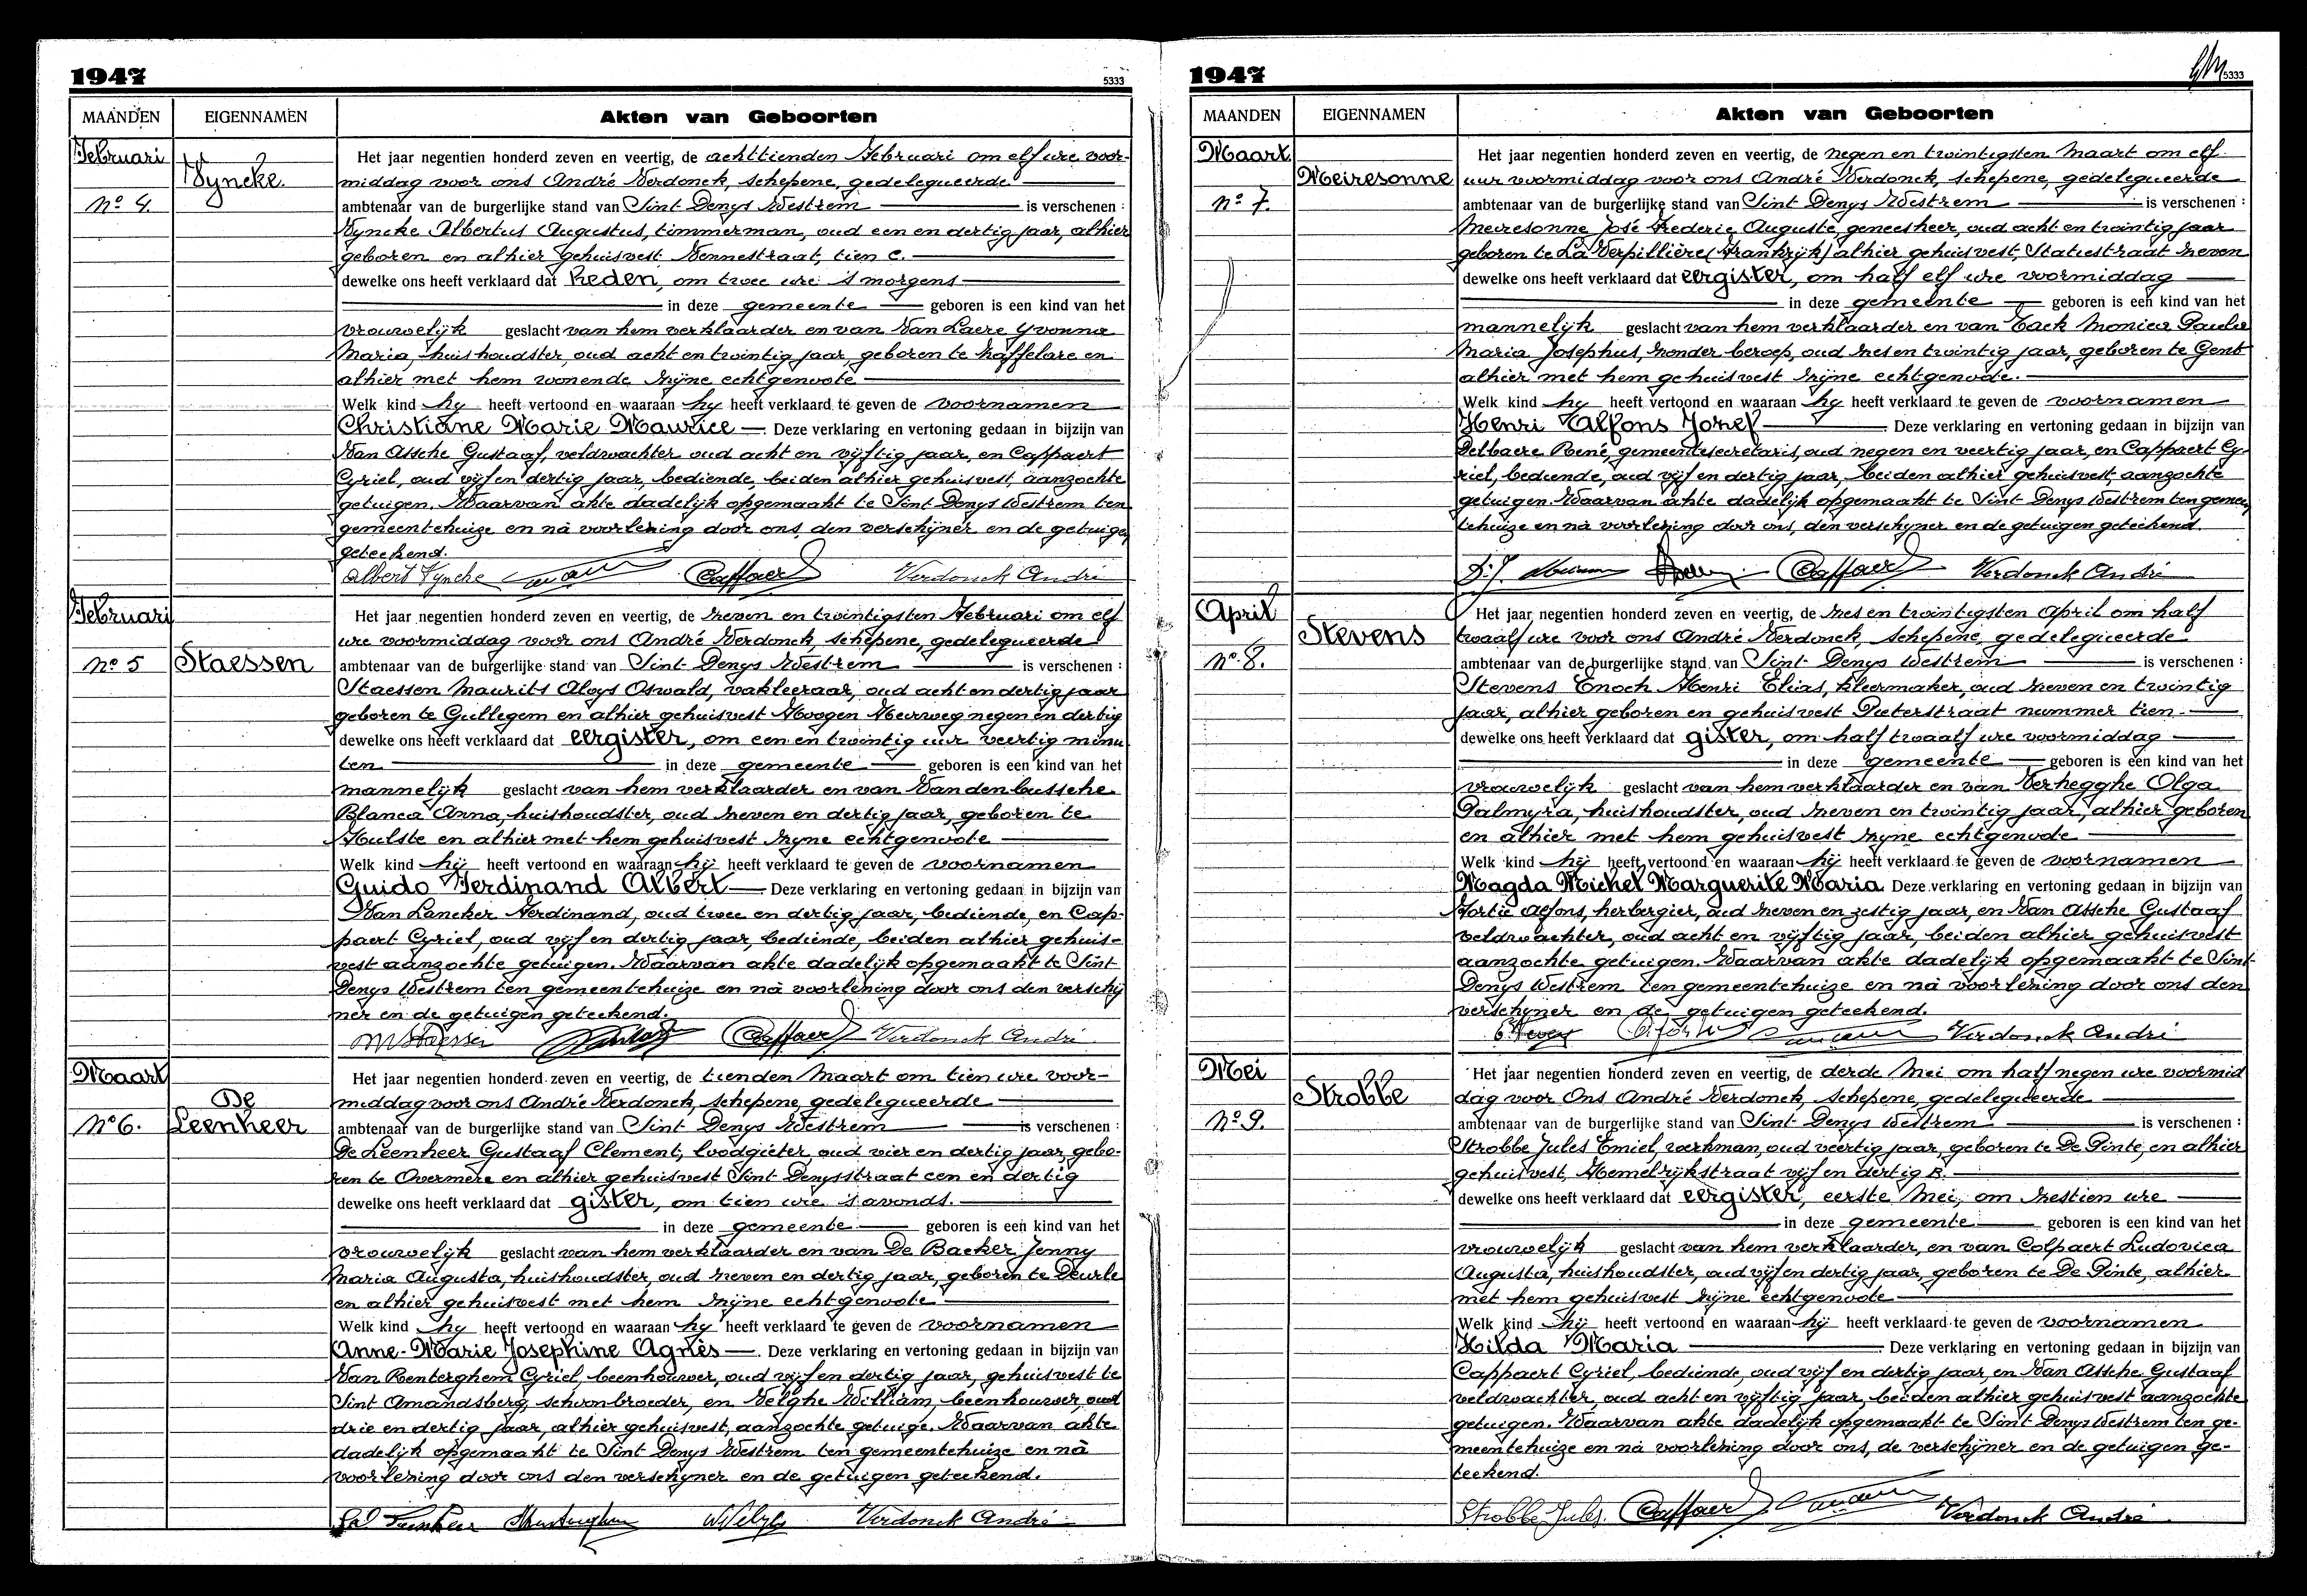 1947
5333
MAANDEN
EIGENNAMEN
Akten van Geboorten
Februari
Nº 4.
Vyncke.
Het jaar negentien honderd zeven en veertig, de achttienden Februari om elf ure voor-
middag voor ons André Verdonck, schepene, gedelegueerde
ambtenaar van de burgerlijke stand van Sint Denys Westrem is verschenen :
Vyncke Albertus Augustus, timmerman, oud een en dertig jaar, alhier
geboren en alhier gehuisvest Vennestraat, tien C.
dewelke ons heeft verklaard dat heden, om twee ure 's morgens
in deze gemeente geboren is een kind van het
vrouwelijk geslacht van hem verklaarder en van Van Laere Yvonna
Maria, huishoudster, oud acht en twintig jaar, geboren te Zaffelare en
alhier met hem wonende zijne echtgenoote
Welk kind hy heeft vertoond en waaraan hy heeft verklaard te geven de voornamen
Christiane Marie Maurice. Deze verklaring en vertoning gedaan in bijzijn van
Van Assche Gustaaf, veldwachter oud acht en vijftig jaar, en Cappaert
Cyriel, oud vijf en dertig jaar, bediende, beiden alhier gehuisvest, aanzochte
getuigen. Waarvan akte dadelijk opgemaakt te Sint Denys Westrem ten
gemeentehuize en nà voorlezing door ons, den verschijner en de getuigen
geteekend.
Albert Vyncke Verdonck André
Februari
Nº 5
Staessen
Het jaar negentien honderd zeven en veertig, de zeven en twintigsten Februari om elf
ure voormiddag voor ons André Verdonck, schepene, gedelegueerde
ambtenaar van de burgerlijke stand van Sint Denys Westrem is verschenen :
Staessen Maurits Aloys Oswald, vakleeraar, oud acht en dertig jaar
geboren te Gullegem en alhier gehuisvest Hoogen Heirweg negen en dertig
dewelke ons heeft verklaard dat eergister, om een en twintig uur veertig minu
ten in deze gemeente geboren is een kind van het
mannelijk geslacht van hem verklaarder en van Vandenbussche
Blanca Anna, huishoudster, oud zeven en dertig jaar, geboren te
Hulste en alhier met hem gehuisvest zijne echtgenoote
Welk kind hij heeft vertoond en waaraan hij heeft verklaard te geven de voornamen
Guido Ferdinand Albert Deze verklaring en vertoning gedaan in bijzijn van
Van Lancker Ferdinand, oud twee en dertig jaar, bediende, en Cap-
paert Cyriel, oud vijf en dertig jaar, bediende, beiden alhier gehuis-
vest aanzochte getuigen. Waarvan akte dadelijk opgemaakt te Sint
Denys Westrem ten gemeentehuize en nà voorlezing door ons den verschij
ner en de getuigen geteekend.
MStaessen Verdonck André
Maart
Nº 6.
De
Leenheer
Het jaar negentien honderd zeven en veertig, de tienden Maart om tien ure voor-
middag voor ons André Verdonck, schepene, gedelegueerde
ambtenaar van de burgerlijke stand van Sint Denys Westrem is verschenen :
De Leenheer Gustaaf Clement, loodgieter, oud vier en dertig jaar, gebo-
ren te Overmere en alhier gehuisvest Sint Denysstraat een en dertig
dewelke ons heeft verklaard dat gister, om tien ure 's avonds.
in deze gemeente geboren is een kind van het
vrouwelijk geslacht van hem verklaarder en van De Backer Jenny
Maria Augusta, huishoudster, oud zeven en dertig jaar, geboren te Deurle
en alhier gehuisvest met hem zijne echtgenoote
Welk kind hy heeft vertoond en waaraan hy heeft verklaard te geven de voornamen
Anne-Marie Josephine Agnès. Deze verklaring en vertoning gedaan in bijzijn van
Van Renterghem Cyriel, beenhouwer, oud vijf en dertig jaar, gehuisvest te
Sint Amandsberg, schoonbroeder, en Velghe William, beenhouwer, oud
drie en dertig jaar, alhier gehuisvest, aanzochte getuige. Waarvan akte
dadelijk opgemaakt te Sint Denys Westrem ten gemeentehuize en nà
voorlezing door ons den verschyner en de getuigen geteekend.
Verdonck André
1947
5333
MAANDEN
EIGENNAMEN
Akten van Geboorten
Maart
Nº 7.
Meiresonne
Het jaar negentien honderd zeven en veertig, de negen en twintigsten Maart om elf
uur voormiddag voor ons André Verdonck, schepene, gedelegueerde
ambtenaar van de burgerlijke stand van Sint Denys Westrem is verschenen :
Meiresonne José Frederic Auguste, geneesheer, oud acht en twintig jaar
geboren te La Verpillière (Frankrijk) alhier gehuisvest, Statiestraat zeven
dewelke ons heeft verklaard dat eergister, om half elf ure voormiddag
in deze gemeente geboren is een kind van het
mannelijk geslacht van hem verklaarder en van Tack Monica Paula
Maria Josephus, zonder beroep, oud zes en twintig jaar, geboren te Gent
alhier met hem gehuisvest zijne echtgenoote.
Welk kind hy heeft vertoond en waaraan hy heeft verklaard te geven de voornamen
Henri Alfons Jozef Deze verklaring en vertoning gedaan in bijzijn van
Delbaere René, gemeentesecretaris, oud negen en veertig jaar, en Cappaert Cy-
riel, bediende, oud vijf en dertig jaar, beiden alhier gehuisvest, aanzochte
getuigen. Waarvan akte dadelijk opgemaakt te Sint Denys Westrem ten gemeen
tehuize en nà voorlezing door ons, den verschyner en de getuigen geteekend.
Verdonck André
April
Nº 8.
Stevens
Het jaar negentien honderd zeven en veertig, de zes en twintigsten April om half
twaalf ure voor ons André Verdonck, schepene, gedelegueerde
ambtenaar van de burgerlijke stand van Sint Denys Westrem is verschenen :
Stevens Enoch Henri Elias, kleermaker, oud zeven en twintig
jaar, alhier geboren en gehuisvest Pieterstraat nummer tien.
dewelke ons heeft verklaard dat gister, om half twaalf ure voormiddag
in deze gemeente geboren is een kind van het
vrouwelijk geslacht van hem verklaarder en van Verhegghe Olga
Palmyra, huishoudster, oud zeven en twintig jaar, alhier geboren
en alhier met hem gehuisvest zijne echtgenoote
Welk kind hij heeft vertoond en waaraan hij heeft verklaard te geven de voornamen
Magda Michel Marguerite Maria Deze verklaring en vertoning gedaan in bijzijn van
Fortie Alfons, herbergier, oud zeven en zestig jaar, en Van Assche Gustaaf
veldwachter, oud acht en vijftig jaar, beiden alhier gehuisvest
aanzochte getuigen. Waarvan akte dadelijk opgemaakt te Sint
Denys Westrem ten gemeentehuize en nà voorlezing door ons den
verschyner en de getuigen geteekend.
Verdonck André
Mei
Nº 9.
Strobbe
Het jaar negentien honderd zeven en veertig, de derde Mei om half negen ure voormid
dag voor Ons André Verdonck, schepene, gedelegueerde
ambtenaar van de burgerlijke stand van Sint Denys Westrem is verschenen :
Strobbe Jules Emiel, werkman, oud veertig jaar, geboren te De Pinte, en alhier
gehuisvest, Hemelrijkstraat vijf en dertig B.
dewelke ons heeft verklaard dat eergister, eerste Mei, om zestien ure
in deze gemeente geboren is een kind van het
vrouwelijk geslacht van hem verklaarder, en van Colpaert Ludovica
Augusta, huishoudster, oud vijf en dertig jaar, geboren te De Pinte, alhier
met hem gehuisvest zijne echtgenoote
Welk kind hij heeft vertoond en waaraan hij heeft verklaard te geven de voornamen
Hilda Maria Deze verklaring en vertoning gedaan in bijzijn van
Cappaert Cyriel, bediende, oud vijf en dertig jaar, en Van Assche Gustaaf
veldwachter, oud acht en vijftig jaar, beiden alhier gehuisvest aanzochte
getuigen. Waarvan akte dadelijk opgemaakt te Sint Denys Westrem ten ge-
meentehuize en nà voorlezing door ons, de verschijner en de getuigen ge-
teekend.
Strobbe Jules. Verdonck André